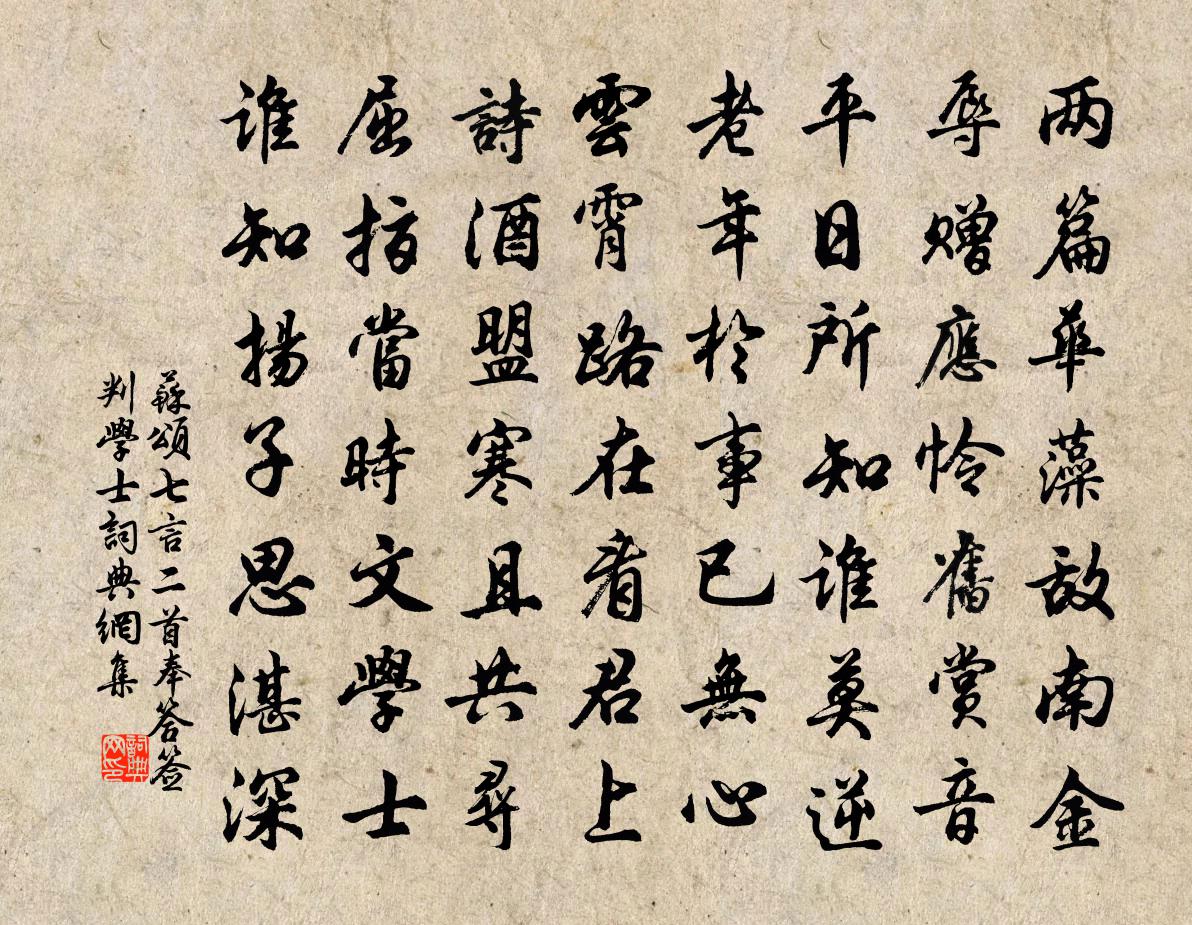 两篇華藻敌南金
辱赠應怜舊赏音
平日所知誰莫逆
老年於事已無心
雲霄路在看君上
詩酒盟寒且共尋
屈指當時文學士
谁知揚子思湛深
蘇頌七言二首奉答签
判學士詞典網集
詞典网印